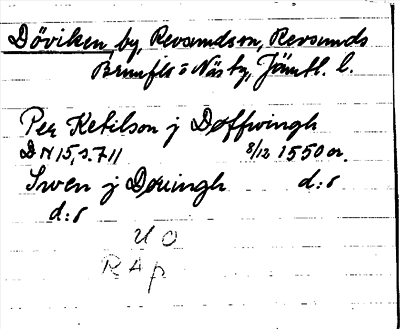 Döviken by, Revsunds sn, Revsunds
Brunflo o Näs tg, Jämtl. l.
Per Ketilson j Døffwingh
DN 15, s. 711 8/12 1550 or.
Swen j Døuingh d:s
d:s
U O
R A p